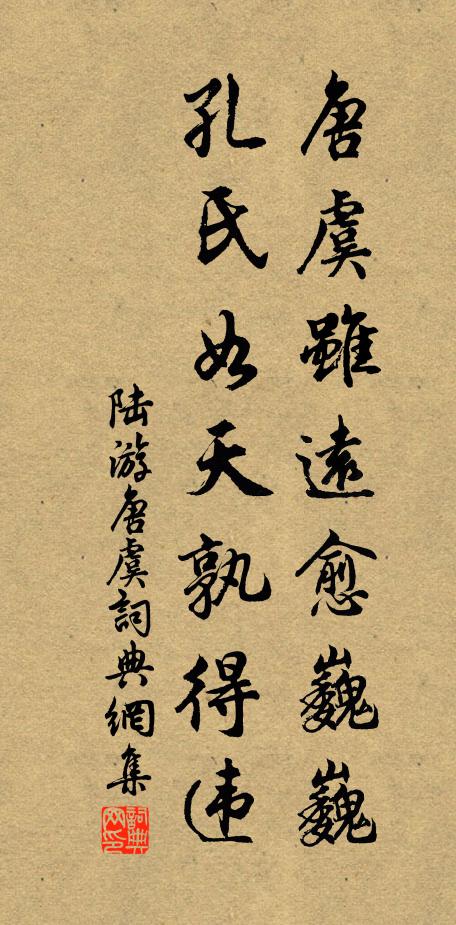 唐虞雖遠愈巍巍
孔氏如天孰得违
陆游唐虞詞典網集
詞典網印